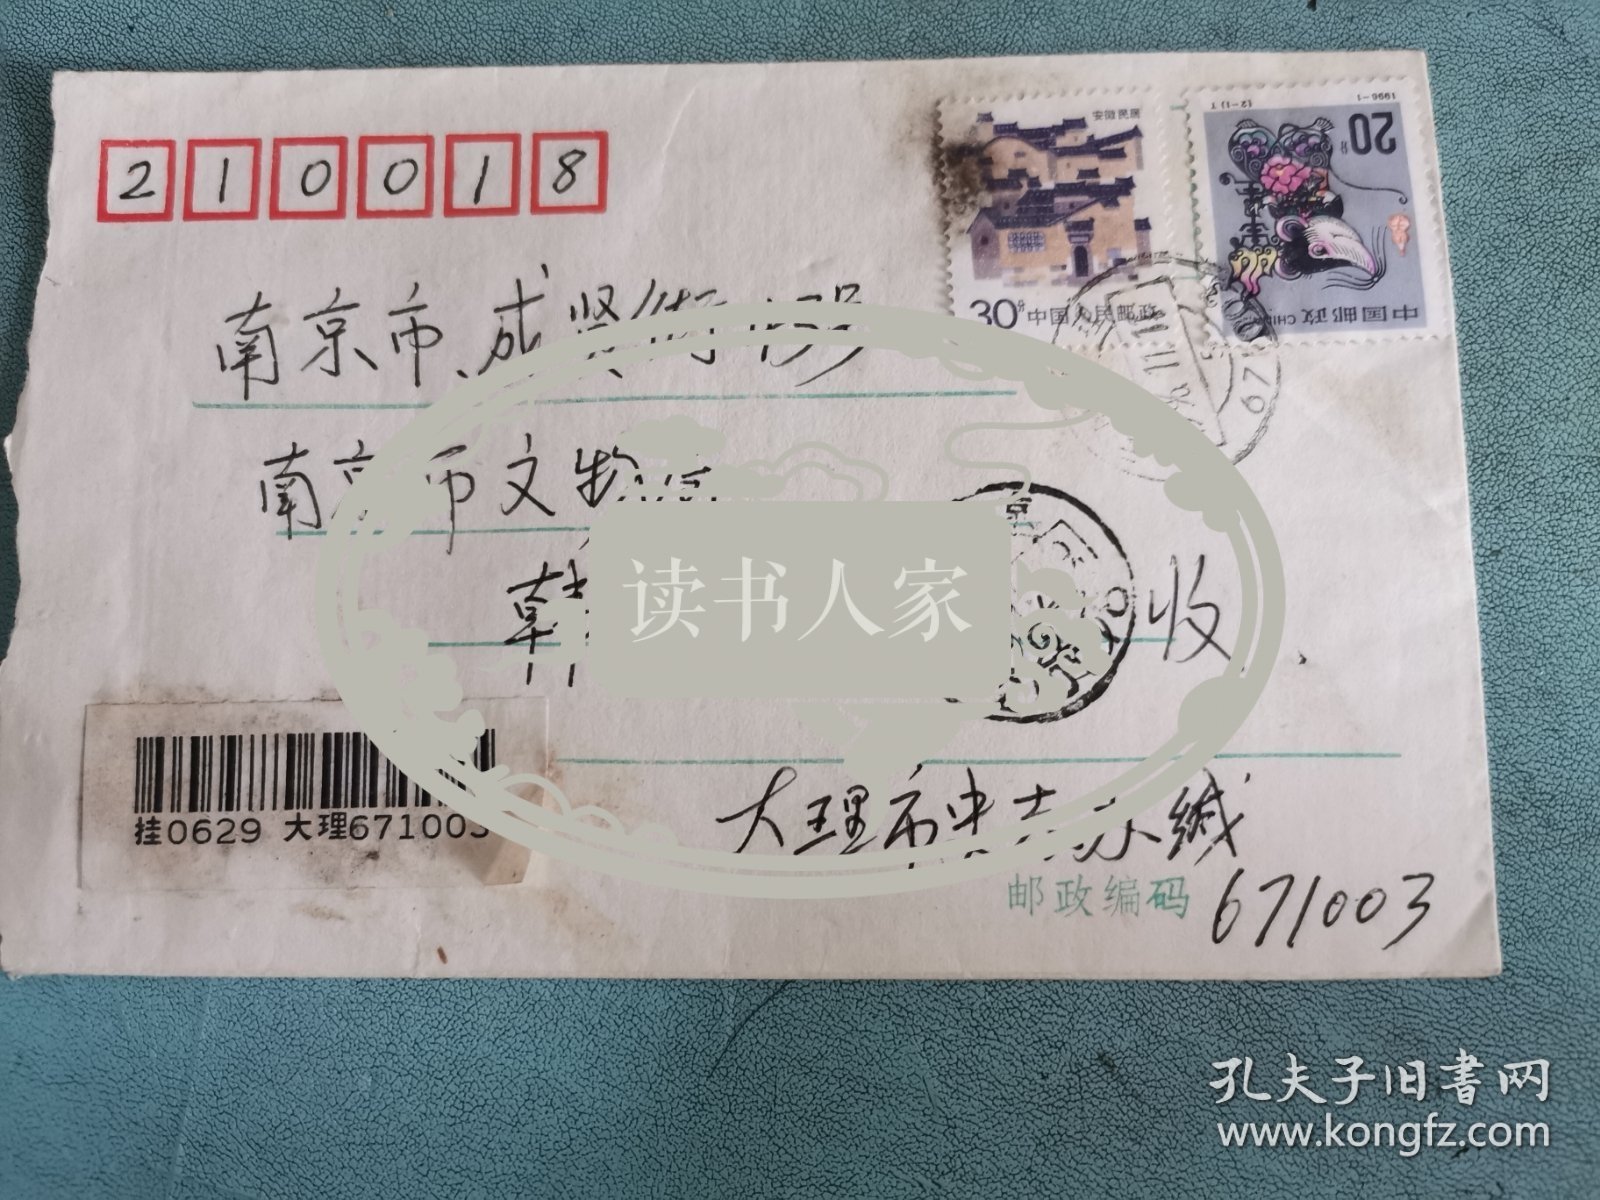 210018
安徽民居
30分 中国人民邮政
1996-1
(2-1)T
20分
中国邮政 CHINA
南京市成贤街43号
南京市文物局
韩
收
读书人家
挂0629 大理671003
大理市 缄
邮政编码 671003
孔夫子旧書网
www.kongfz.com